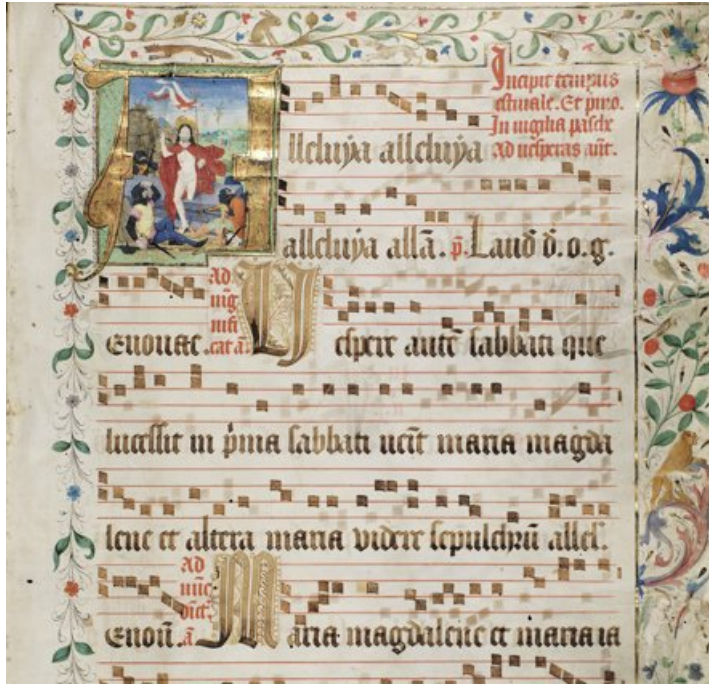 Incipit tempus
estivale. Et primo.
In vigilia pasche
Ad vesperas ant.
Alleluya alleluya
alleluya alla. p̄. Laud d. o. g.
Ad
mag
nifi
cat a.
euouae. Vespere autē sabbati que
lucessit in p̄ma sabbati uēit maria magda
lene et altera maria videre sepulchrū allel.
Ad
nūc
dict.
ā
euou. Maria magdalene et maria ia